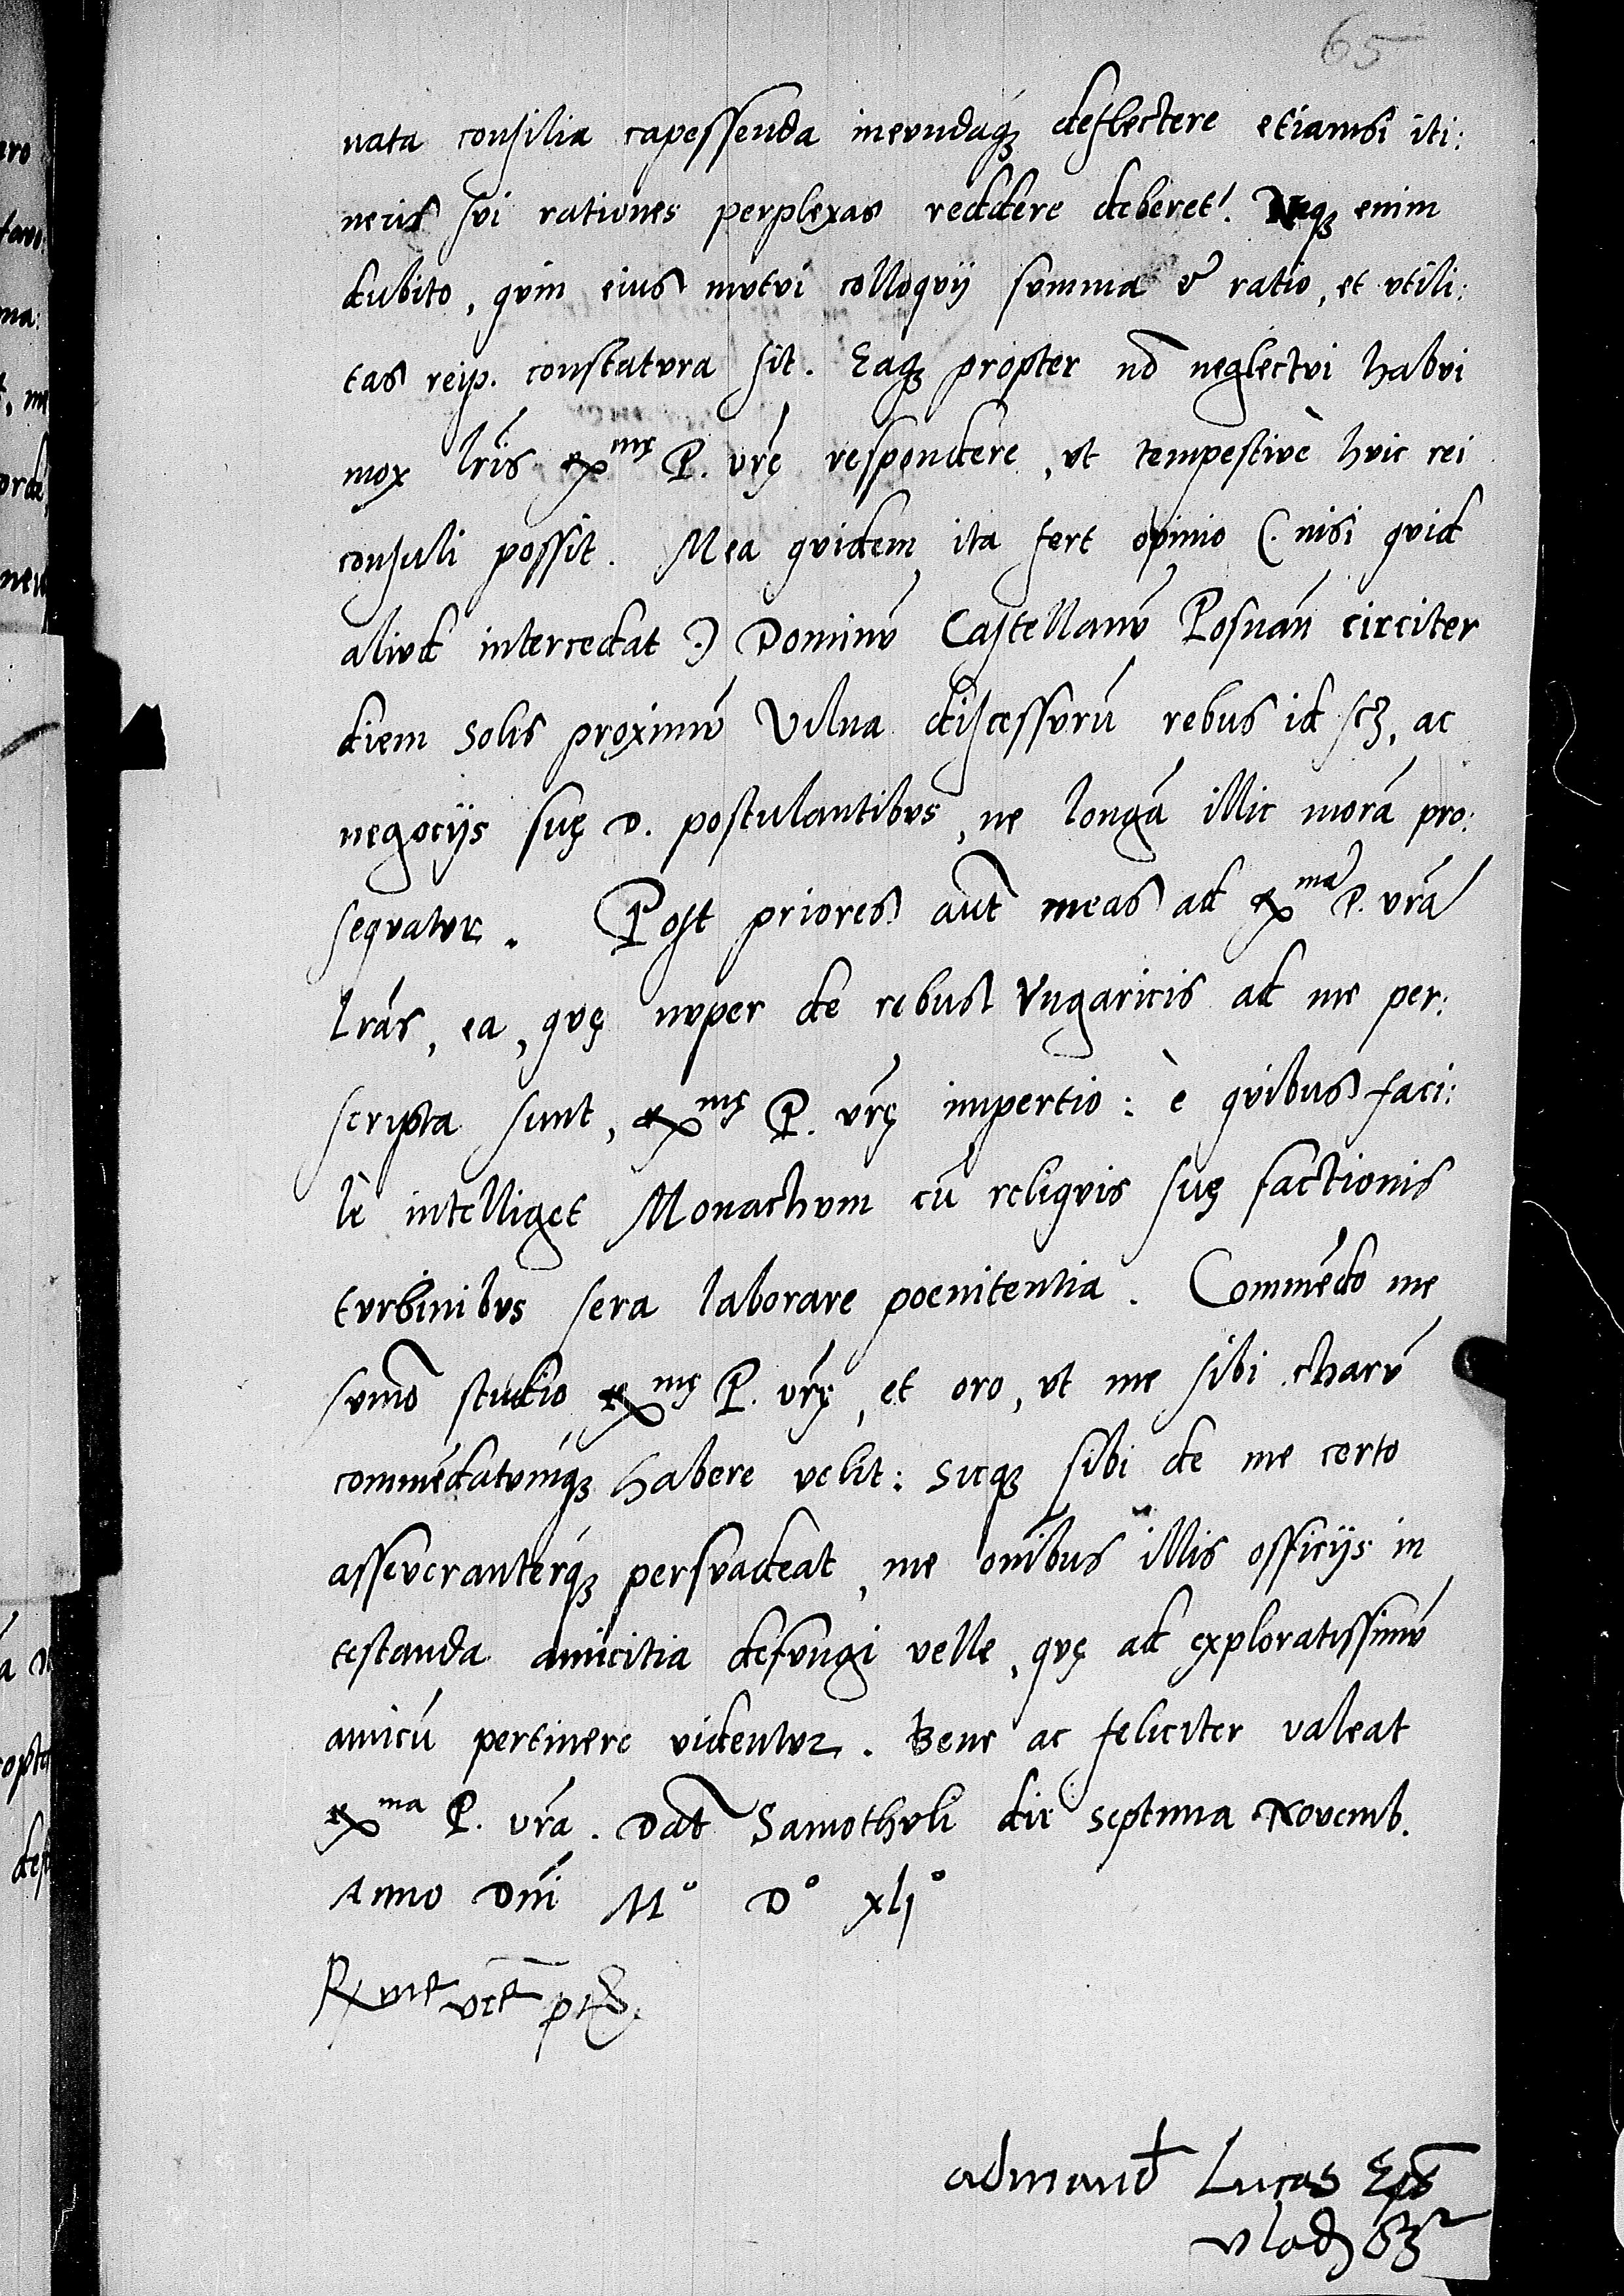 65
nata consilia capessenda ineundaq₃ deflectere etiamsi iti:
neris sui rationes perplexas reddere deberet. Neq₃ enim
dubito, quin eius mutui colloquij summa & ratio, et utili:
tas reip. constatura sit. Eaq₃ propter nō neglectui habui
mox lr̄is Exmę P. vr̄ę respondere, ut tempestivè huic rei
consuli possit. Mea quidem ita fert opinio (: nisi quid
aliud intercedat :) Dominū Castellanū Posnan̄ circiter
diem Solis proximū Vilna discessurū rebus id sc₃, ac
negocijs suę D. postulantibus, ne longā illic morā pro:
sequatur. Post priores aut̄ meas ad Exmā P. vr̄ā
lr̄as, ea, quę nuper de rebus Vngaricis ad me per:
scripta sunt, Exmę P. vr̄ę impertio: è quibus faci:
lè intelliget Monachum cū reliquis suę factionis
turbinibus sera laborare poenitentia. Commēdo me
sum̄o studio Exmę P. vr̄ę, et oro, ut me sibi charū
commēdatumq₃ habere velit: Sicq₃ sibi de me certo
asseveranterq₃ persuadeat, me om̄ibus illis officijs in
testanda amicitia defungi velle, quę ad exploratissimū
amicū pertinere videntur. Bene ac feliciter valeat
Exma P. vr̄a. Dat̄ Samothuli die septima Novemb.
Anno Dn̄i M° D° xlj°
vr̄e
Lucas Ep̄s